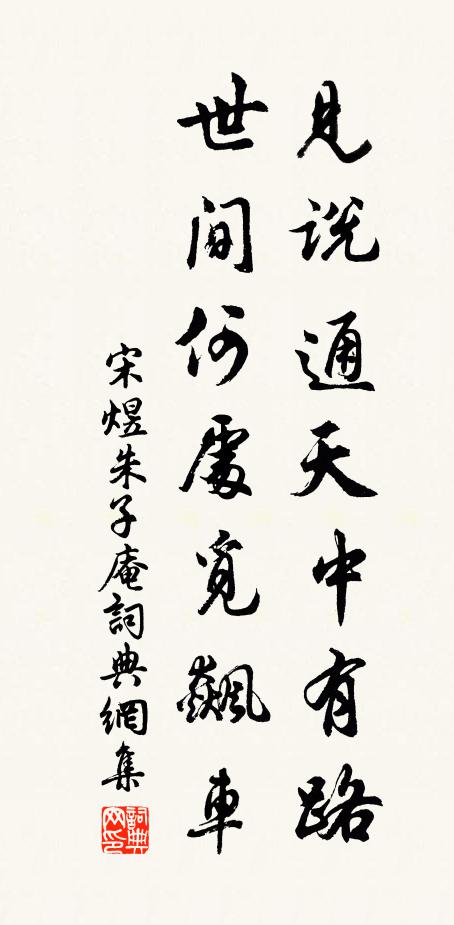 見説通天中有路
世間何處覓飆車
宋煜朱子庵詞典網集
詞典
网印